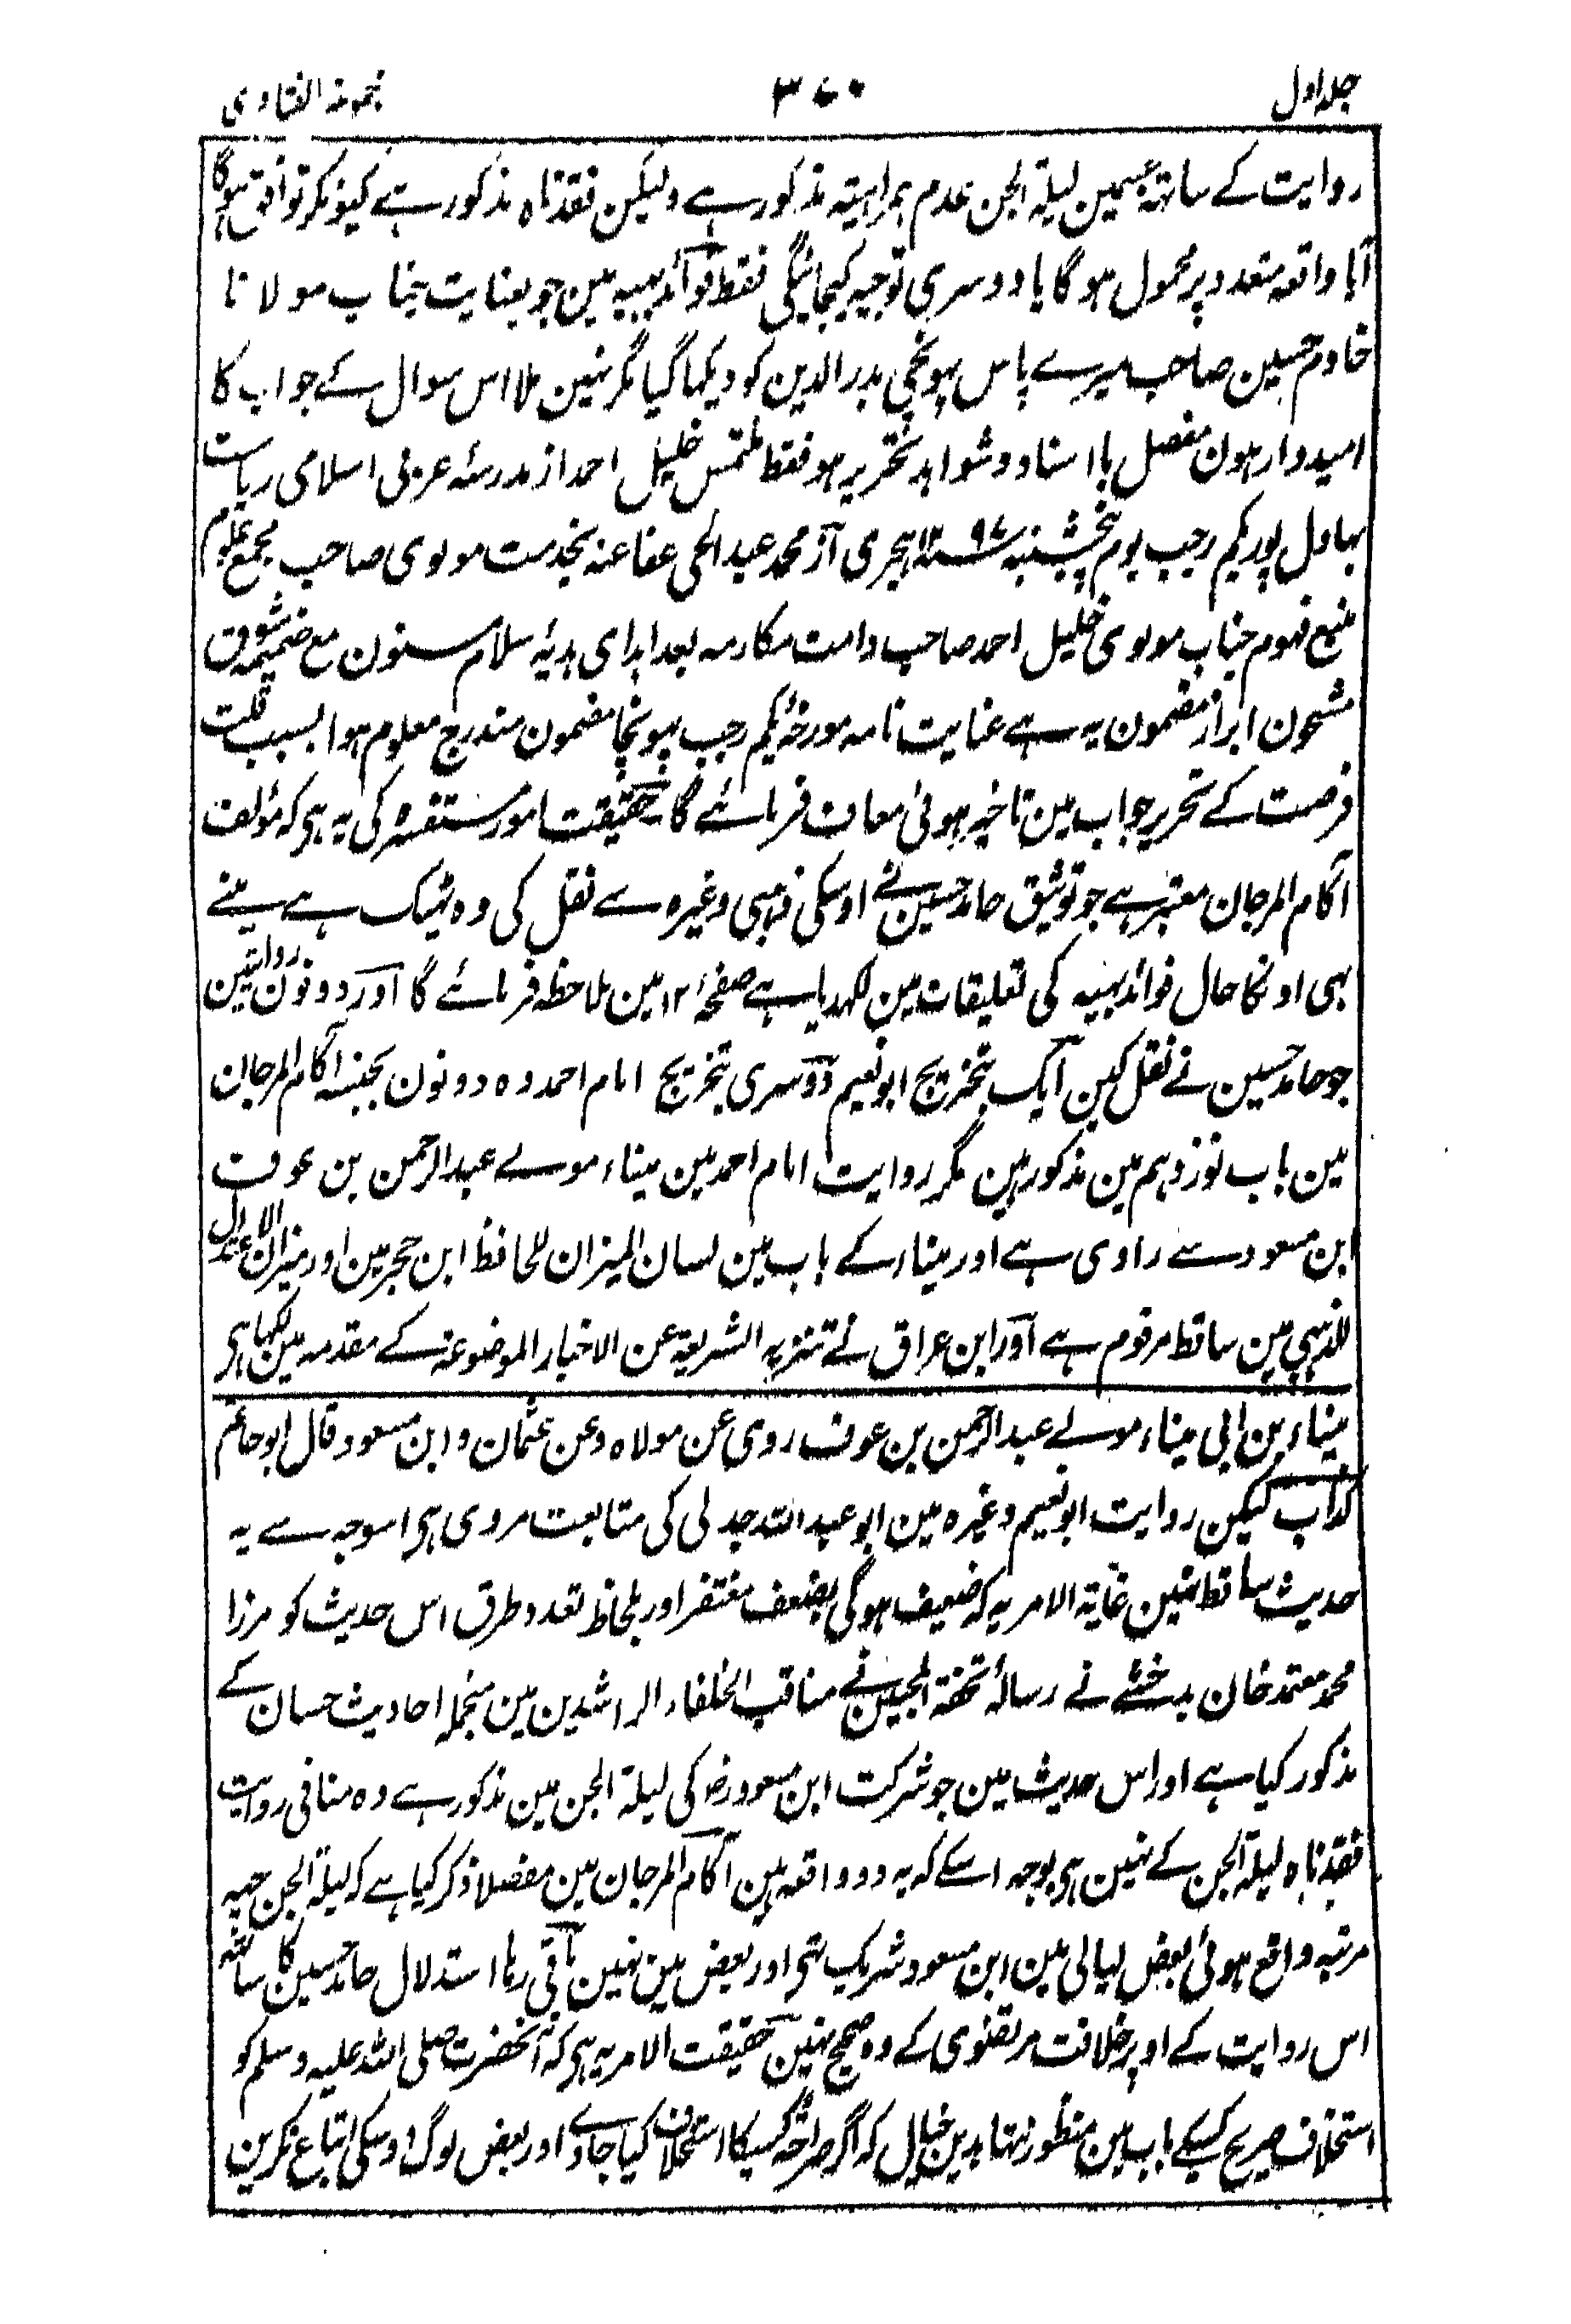 جلد اول
۳۷۰
مجموعۃ الفتاوی
روایت کے ساتھ جسمین لیلۃ الجن عدم ہمراہیتہ مذکور ہے ولیکن فقدناہ مذکور ہے کیونکر توافق ہوگا
آیا واقعہ متعدد پر محمول ہوگا یا دوسری توجیہ کیجائیگی فقط فوائد بہیہ مین جو بعنایت جناب مولانا
خادم حسین صاحب میرے پاس پہونچی بدر الدین کو دیکھا گیا مگر نہین ملا اس سوال کے جواب کا
امیدوار ہون مفصل با اسناد و شواہد تحریر ہو فقط ملتمس خلیل احمد از مدرسہ عربی اسلامی ریاست
بہاول پور یکم رجب یوم پنجشنبہ ۱۲۹۷ ہجری از محمد عبد الحی عفا عنہ بخدمت مولوی صاحب مجمع علوم
منبع فہوم جناب مولوی خلیل احمد صاحب دامت مکارمہ بعد اہدای ہدیۂ سلام مسنون مع ضمیمہ شوق
مشحون ابراز مضمون یہ ہے عنایت نامہ مورخۂ یکم رجب پہونچا مضمون مندرج معلوم ہوا بسبب قلت
فرصت کے تحریر جواب مین تاخیر ہوئی معاف فرمائے گا حقیقت امور مستفسرہ کی یہ ہی کہ مؤلف
آکام المرجان معتبر ہے جو توثیق حامد حسین نے اوسکی ذہبی وغیرہ سے نقل کی وہ ٹھیک ہے مینے
بھی اونکا حال فوائد بہیہ کی تعلیقات مین لکھدیا ہے صفحہ ۱۲ مین ملاحظہ فرمائے گا اور دونون روایتین
جو حامد حسین نے نقل کین ایک بتخریج ابو نعیم دوسری بتخریج امام احمد وہ دونون بجنسہ آکام المرجان
مین باب نوزدہم مین مذکور ہین مگر روایت امام احمد مین میناء مولے عبد الرحمن بن عوف
ابن مسعود سے راوی ہے اور میناء کے باب مین لسان المیزان للحافظ ابن حجر مین اور میزان الاعتدال
للذہبی مین ساقط مرقوم ہے اور ابن عراق نے تنزیہ الشریعۃ عن الاخبار الموضوعۃ کے مقدمہ مین لکھا ہی
میناء بن ابی میناء مولے عبد الرحمن بن عوف روی عن مولاہ وعن عثمان وابن مسعود قال ابو حاتم
کذاب لیکن روایت ابو نعیم وغیرہ مین ابو عبد اللہ جدلی کی متابعت مروی ہی اسوجہ سے یہ
حدیث ساقط نہین غایۃ الامر یہ کہ ضعیف ہوگی بضعف مغتفر اور بلحاظ تعدد طرق اس حدیث کو مرزا
محمد معتمد خان بدخشے نے رسالۂ تحفۃ المحبین فے مناقب الخلفاء الراشدین مین منجملہ احادیث حسان کے
مذکور کیا ہے اور اس حدیث مین جو شرکت ابن مسعود رض کی لیلۃ الجن مین مذکور ہے وہ منافی روایت
فقدناہ لیلۃ الجن کے نہین ہی بوجہ اسکے کہ یہ دو واقعہ ہین آکام المرجان مین مفصلا ذکر کیا ہے کہ لیلۃ الجن چہہ
مرتبہ واقع ہوئی بعض لیالی مین ابن مسعود شریک تھے اور بعض مین نہین باقی رہا استدلال حامد حسین کا ساتھ
اس روایت کے اوپر خلافت مرتضوی کے وہ صحیح نہین حقیقت الامر یہ ہی کہ آنحضرت صلی اللہ علیہ وسلم کو
استخلاف صریح کسیکے باب مین منظور نتھا بدین خیال کہ اگر صراحۃً کسیکا استخلاف کیا جاوے اور بعض لوگ اوسکی اتباع نکرین